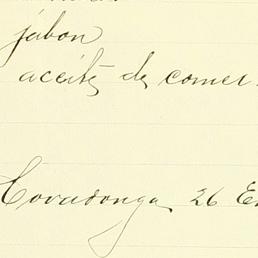 jabon
aceite de comer
Covadonga, 26 En